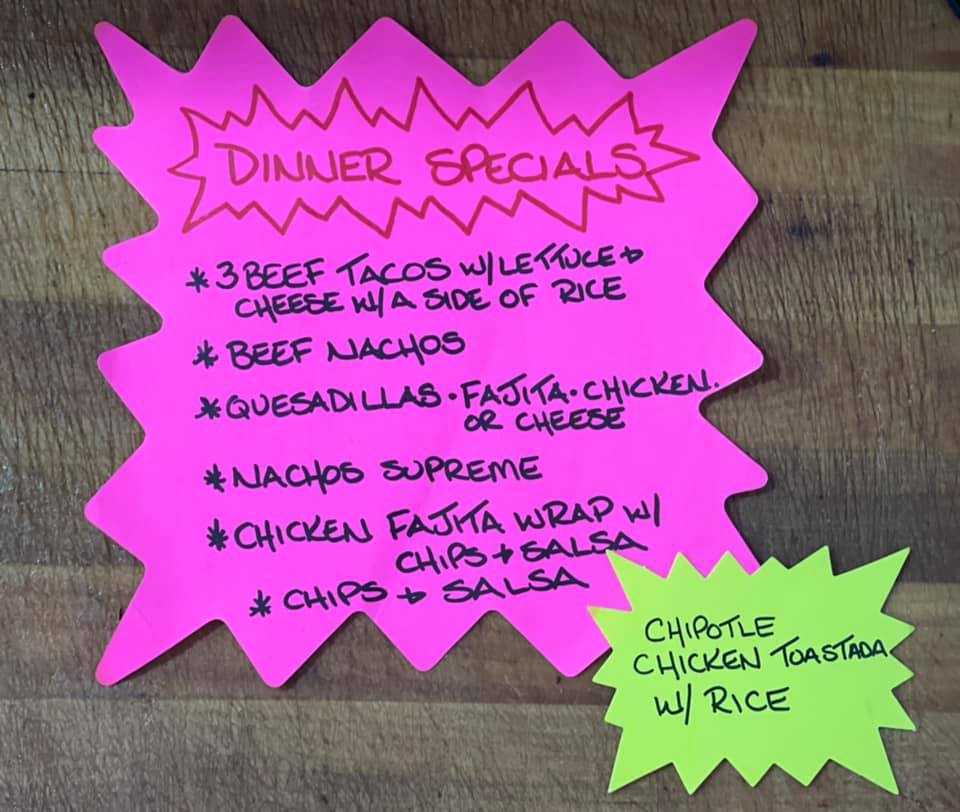 DINNER SPECIALS
* 3 BEEF TACOS W/ LETTUCE +
CHEESE W/ A SIDE OF RICE
* BEEF NACHOS
* QUESADILLAS · FAJITA · CHICKEN.
OR CHEESE
* NACHOS SUPREME
* CHICKEN FAJITA WRAP W/
CHIPS + SALSA
* CHIPS + SALSA
CHIPOTLE
CHICKEN TOASTADA
W/ RICE